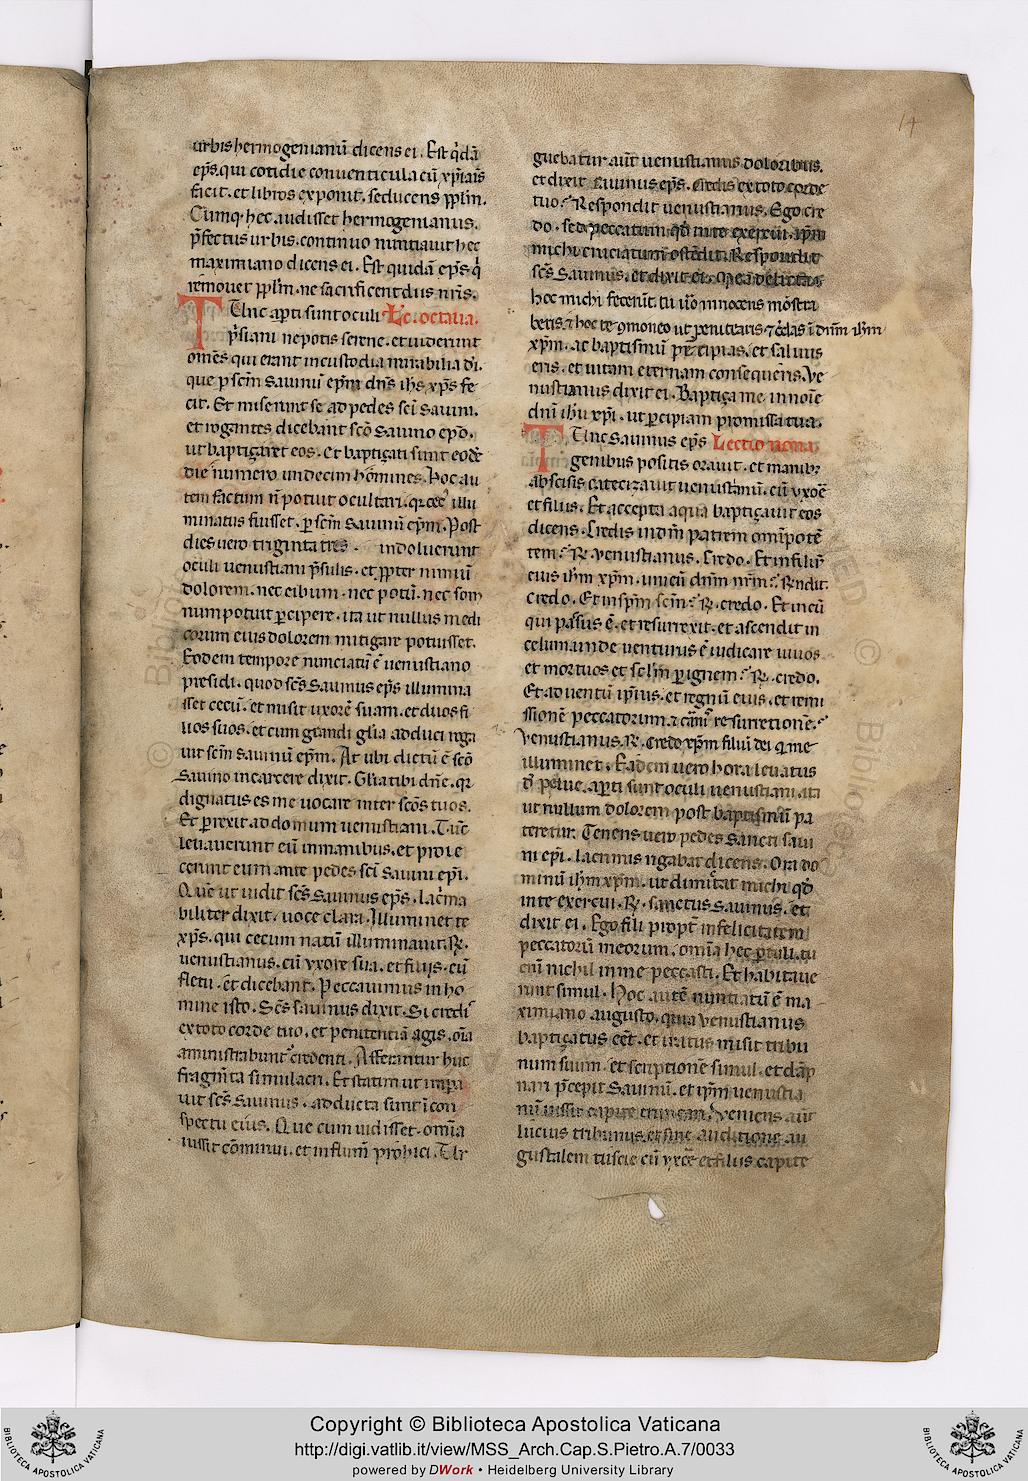 14
urbis hermogenianũ dicens ei. Est q̇dã
ep̃s. qui cotidie conuenticula cũ xp̃ianis
ficit. et libros exponit. seducens pp̃lm.
Cumq; hec audisset hermogenianus.
p̃fectus urbis. continuo nuntiauit hec
maximiano dicens ei. Est quidã ep̃s q̇
remouet pp̃lm. ne sacrificent diis nr̃is.
TUnc apti sunt oculi Lc̃. octaua.
p̃siani nepotis serene. et uiderunt
om̃es qui erant in custodia mirabilia dĩ.
que p sc̃m Sauinũ ep̃m dñs ih̃s xp̃s fe
cit. Et miserunt se ad pedes sc̃i Sauini.
et rogantes dicebant sc̃o Sauino ep̃o.
ut baptiçaret eos. et baptiçati sunt eodẽ
die numero undecim hõmines. Hoc au
tem factum ñ potuit ocultari. qr cec illu
minatus fuisset. p sc̃m Sauinũ ep̃m. Post
dies uero triginta tres. indoluerunt
oculi uenustiani p̃sulis. et ppter nimiũ
dolorem. nec cibum. nec potũ. nec som
num potuit pcipere. ita ut nullus medi
corum eius dolorem mitigare potuisset.
Eodem tempore nunciatũ ẽ uenustiano
presidi. quod sc̃s Sauinus ep̃s illumina
sset cecũ. et misit uxorẽ suam. et duos fi
lios suos. et cum grandi gl̃ia adduci roga
uit sc̃m Sauinũ ep̃m. At ubi dictũ ẽ sc̃o
Sauino in carcere dixit. Gl̃ia tibi dñe. qr
dignatus es me uocare inter sc̃os tuos.
Et prexit ad domum uenustiani. Tũc
leuauerunt eũ in manibus. et proie
cerunt eum ante pedes sc̃i Sauini ep̃i.
Quẽ ut uidit sc̃s Sauinus ep̃s. lacrima
biliter dixit. uoce clara. Illuminet te
xp̃s. qui cecum natũ illuminauit. R̃.
uenustianus. cũ uxore sua. et filijs. cũ
fletu. et dicebant. Peccauimus in ho
mine isto. Sc̃s sauinus dixit. Si credi
ex toto corde tuo. et penitentiã agis. om̃a
aministrabunt credenti. Afferantur huc
fragm̃ta simulacri. Et statim ut impa
uit sc̃s Sauinus. adducta sunt ĩ con
spectu eius. Que cum uidisset. omĩa
iussit cõminui. et in flum̃ prohici. Tor
guebatur aut̃ uenustianus doloribus.
et dixit Sauinus ep̃s. Credis ex toto corde
tuo? Respondit uenustianus. Ego cre
do. sed peccatum qd̃ in te exercui. ip̃m
michi cruciatum ostẽdit. Respondit
sc̃s Sauinus. et dixit ei. Mea delicta
hoc michi fecerũt. tu ũo innocens mõstra
beris. ⁊ hoc te 9moneo ut peniteatis ⁊ c̃das ĩ dñm ih̃m
xp̃m. ac baptismũ pcipias. et saluus
eris. et uitam eternam consequeris. Ve
nustianus dixit ei. Baptiça me in noĩe
dñi ih̃u xp̃i. ut pcipiam promissa tua.
TUnc Sauinus ep̃s Lectio nona.
genibus positis orauit. et manibʒ
abscisis catecizauit uenustianũ. cũ uxoẽ
et filiis. Et accepta aqua baptiçauit eos
dicens. Credis in dm̃ patrem omĩpotẽ
tem? R̃. venustianus. Credo. Et in filiũ
eius ih̃m xp̃m. unicũ dñm nr̃m? Rñdit.
Credo. Et in sp̃m sc̃m? R̃. credo. Et in eũ
qui passus ẽ. et resurrexit. et ascendit in
celum. inde uenturus ẽ iudicare uiuos
et mortuos et sc̃lm p ignem? R̃. credo.
Et aduentũ ip̃ius. et regnũ eius. et remi
ssionẽ peccatorum. ⁊ carnis resurretionẽ?
Venustianus. R̃. Credo xp̃m filiũ dei q me
illuminet. Eadem uero hora leuatus
d pelue. apti sunt oculi uenustiani. ita
ut nullum dolorem post baptismũ pa
teretur. Tenens uero pedes Sancti saui
ni ep̃i. lacrimis rigabat dicens. Ora do
minũ ih̃m xp̃m. ut dimittat michi qd̃
in te exercui. R̃. sanctus Sauinus. et
dixit ei. Ego fili propt̃ infelicitatem
peccatorũ meorum. omĩa hec ptuli. tu
enĩ nichil in me peccasti. Et habitaue
runt simul. Hoc autẽ nuntiatũ ẽ ma
ximiano augusto. quia venustianus
baptiçatus eẽt. et iratus misit tribu
num suum. et scriptionẽ simul. et dãp
nari p̃cepit Sauinũ. et ip̃m uenustia
nũ iussit capite truncari. Veniens aut̃
lucius tribunus. et sine auditione au
gustalem tuscie cũ uxore et filiis capite
Copyright © Biblioteca Apostolica Vaticana
http://digi.vatlib.it/view/MSS_Arch.Cap.S.Pietro.A.7/0033
powered by DWork • Heidelberg University Library
BIBLIOTECA APOSTOLICA VATICANA
BIBLIOTECA APOSTOLICA VATICANA